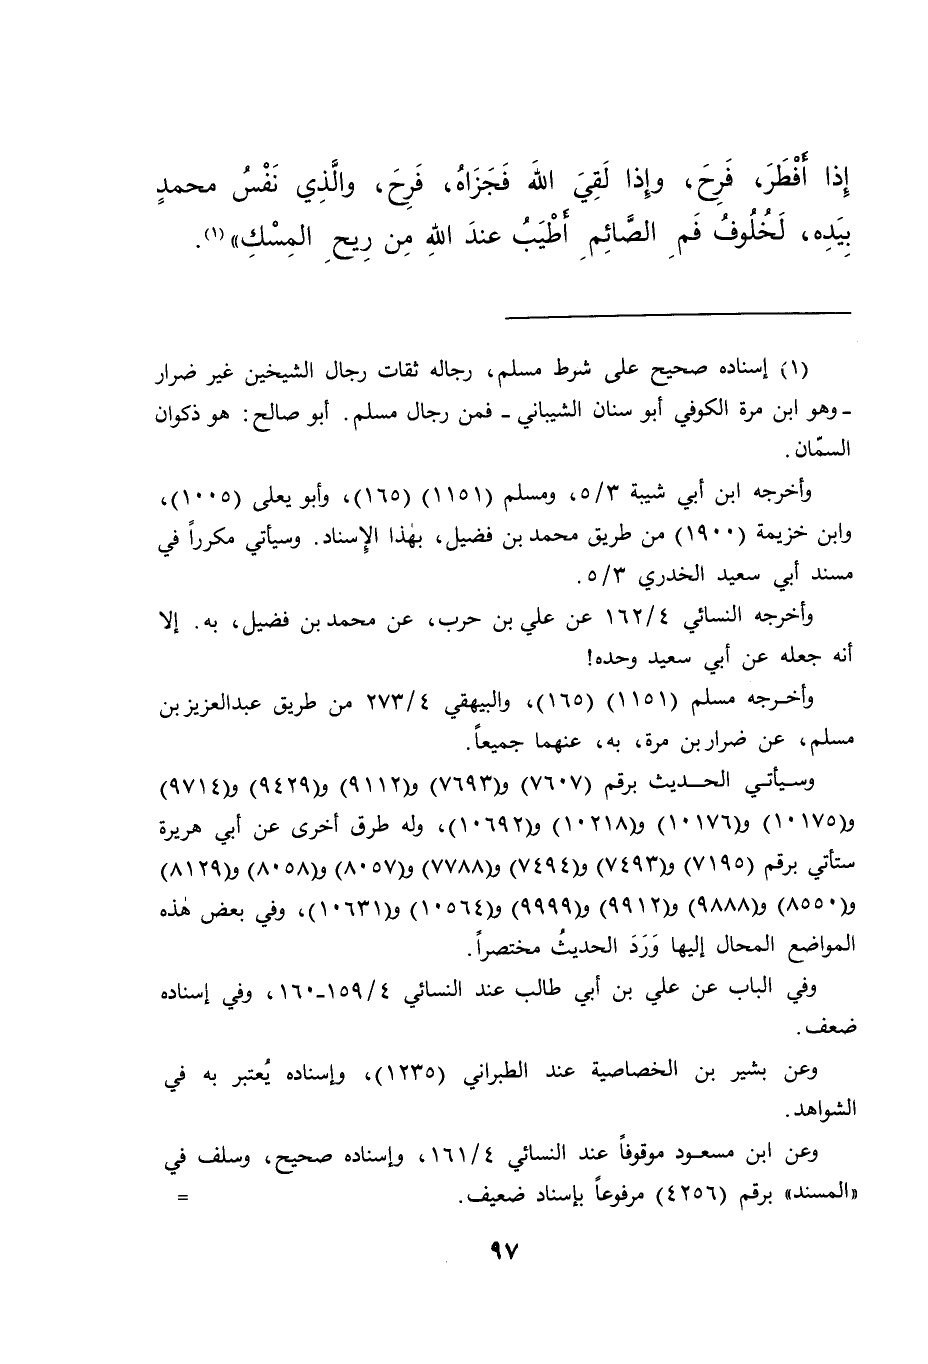 إِذا أَفْطَرَ، فَرِحَ، وإِذا لَقِيَ اللهَ فَجَزَاهُ، فَرِحَ، والَّذِي نَفْسُ محمدٍ
بِيَدِه، لَخُلُوفُ فَمِ الصَّائِمِ أَطْيَبُ عندَ اللهِ مِن رِيحِ المِسْكِ» (١).
(١) إسناده صحيح على شرط مسلم، رجاله ثقات رجال الشيخين غير ضرار
- وهو ابن مرة الكوفي أبو سنان الشيباني - فمن رجال مسلم. أبو صالح: هو ذكوان
السمّان.
وأخرجه ابن أبي شيبة ٥/٣، ومسلم (١١٥١) (١٦٥)، وأبو يعلى (١٠٠٥)،
وابن خزيمة (١٩٠٠) من طريق محمد بن فضيل، بهٰذا الإِسناد. وسيأتي مكرراً في
مسند أبي سعيد الخدري ٥/٣.
وأخرجه النسائي ١٦٢/٤ عن علي بن حرب، عن محمد بن فضيل، به. إلا
أنه جعله عن أبي سعيد وحده!
وأخرجه مسلم (١١٥١) (١٦٥)، والبيهقي ٢٧٣/٤ من طريق عبدالعزيز بن
مسلم، عن ضرار بن مرة، به، عنهما جميعاً.
وسيأتي الحديث برقم (٧٦٠٧) و(٧٦٩٣) و(٩١١٢) و(٩٤٢٩) و(٩٧١٤)
و(١٠١٧٥) و(١٠١٧٦) و(١٠٢١٨) و(١٠٦٩٢)، وله طرق أخرى عن أبي هريرة
ستأتي برقم (٧١٩٥) و(٧٤٩٣) و(٧٤٩٤) و(٧٧٨٨) و(٨٠٥٧) و(٨٠٥٨) و(٨١٢٩)
و(٨٥٥٠) و(٩٨٨٨) و(٩٩١٢) و(٩٩٩٩) و(١٠٥٦٤) و(١٠٦٣١)، وفي بعض هٰذه
المواضع المحال إليها وَرَدَ الحديثُ مختصراً.
وفي الباب عن علي بن أبي طالب عند النسائي ١٥٩/٤-١٦٠، وفي إسناده
ضعف.
وعن بشير بن الخصاصية عند الطبراني (١٢٣٥)، وإسناده يُعتبر به في
الشواهد.
وعن ابن مسعود موقوفاً عند النسائي ١٦١/٤، وإسناده صحيح، وسلف في
«المسند» برقم (٤٢٥٦) مرفوعاً بإسناد ضعيف. =
٩٧